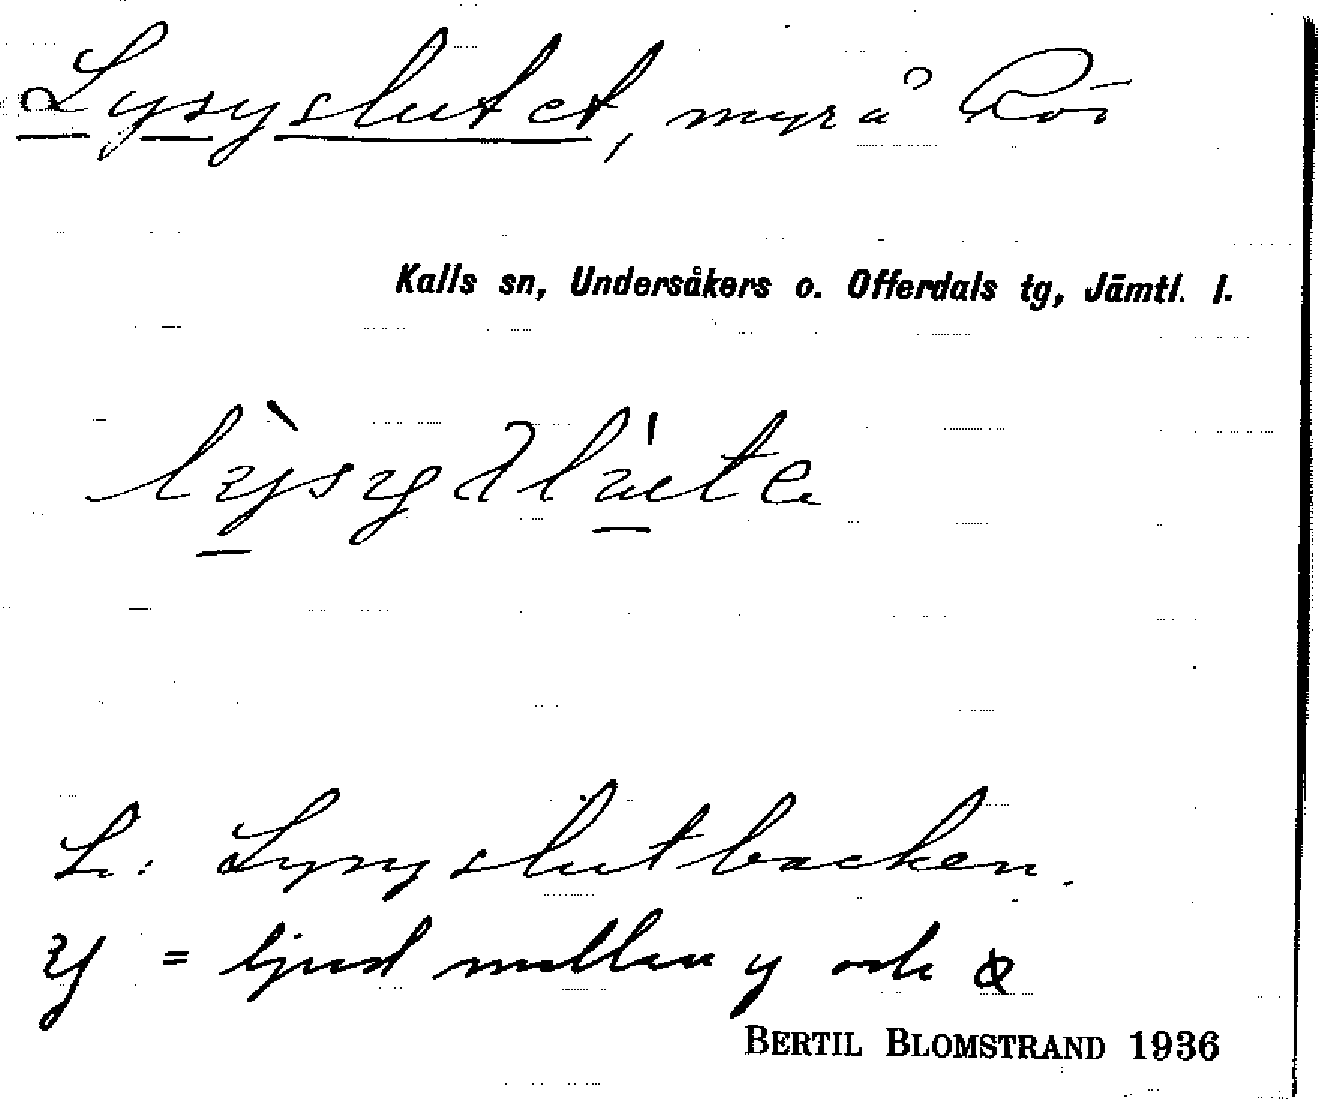 Lysyslutet, myr å Röi
Kalls sn, Undersåkers o. Offerdals tg, Jämtl. l.
L: Lysyslutbacken.
y = ljud mellan y och ø
BERTIL BLOMSTRAND 1936